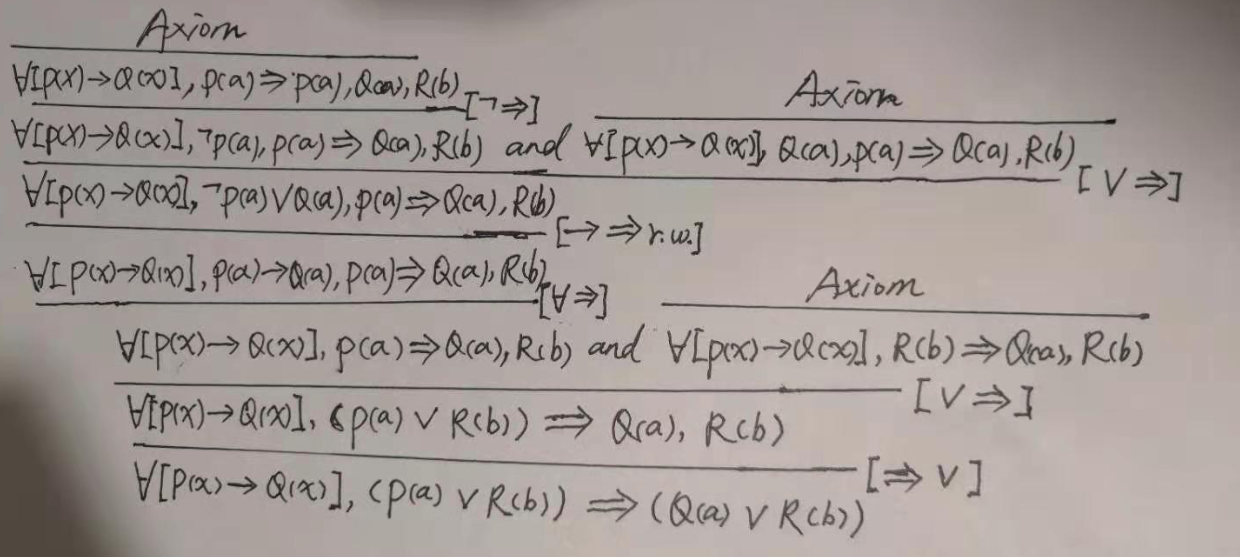 Axiom
∀[p(x)→Q(x)], p(a)⇒p(a), Q(a), R(b) [¬⇒]
Axiom
∀[p(x)→Q(x)], ¬p(a), p(a)⇒Q(a), R(b) and ∀[p(x)→Q(x)], Q(a), p(a)⇒Q(a), R(b) [∨⇒]
∀[p(x)→Q(x)], ¬p(a)∨Q(a), p(a)⇒Q(a), R(b) [→⇒r.w.]
∀[p(x)→Q(x)], p(a)→Q(a), p(a)⇒Q(a), R(b) [∀⇒]
Axiom
∀[p(x)→Q(x)], p(a)⇒Q(a), R(b) and ∀[p(x)→Q(x)], R(b)⇒Q(a), R(b) [∨⇒]
∀[p(x)→Q(x)], (p(a) ∨ R(b)) ⇒ Q(a), R(b) [⇒∨]
∀[p(x)→Q(x)], (p(a) ∨ R(b)) ⇒ (Q(a) ∨ R(b))